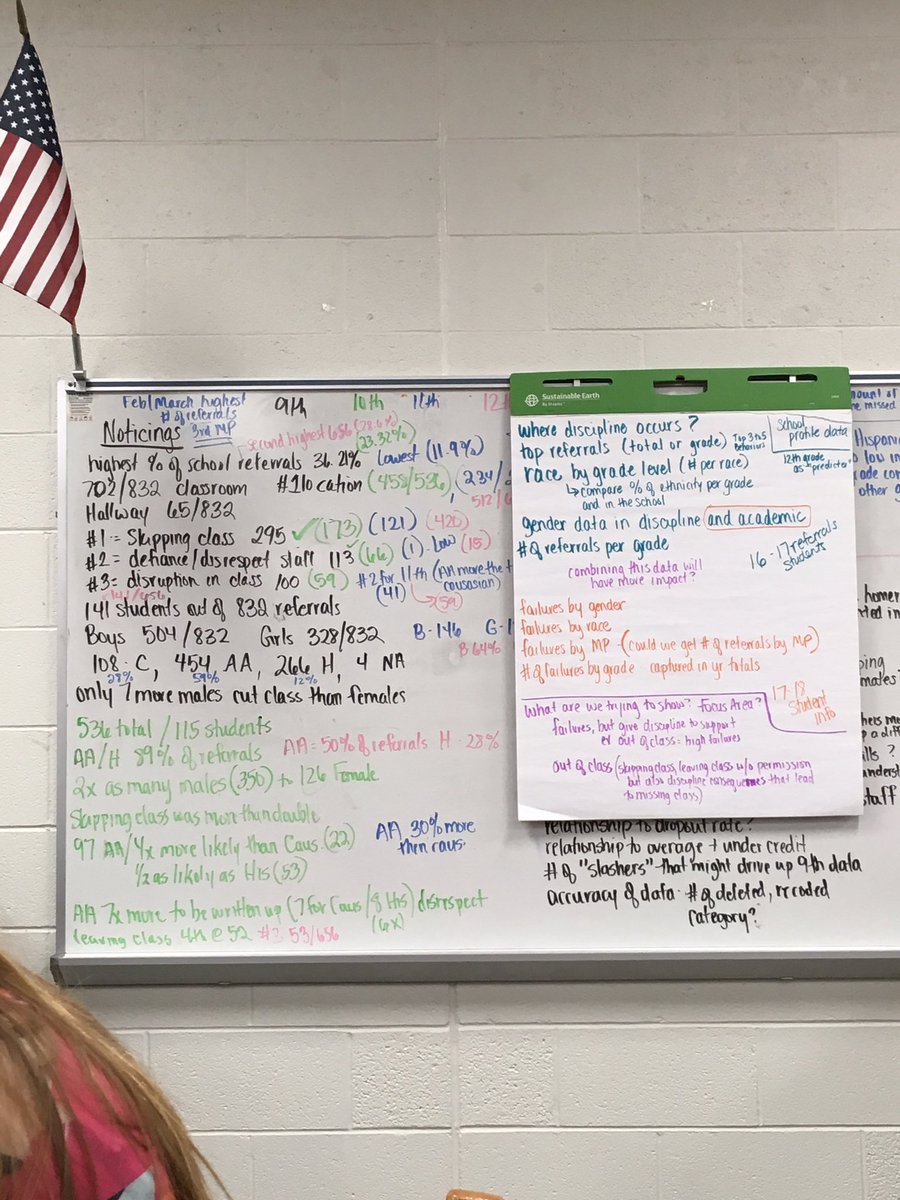 Feb/March highest
# of referrals
3rd MP
9th
10th
11th
12th
Noticings
second highest 656 (28.6%)
(23.32%)
highest % of school referrals 36.21%
Lowest (11.9%)
702/832 classroom
#1 location (458/536)
(234/
512/
Hallway 65/832
#1 = Skipping class 295 ✓ (173) (121) (420)
#2 = defiance/disrespect staff 113 (66) (1). Low (15)
#3 = disruption in class 100 (59) #2 for 11th (AA more the
causasian)
(41)
(59)
141/656
141 students out of 832 referrals
Boys 504/832 Girls 328/832
B-146 G-1
B 64%
108-C, 454 AA, 266 H, 4 NA
28% 59% 12%
only 7 more males cut class than females
536 total / 115 students
AA/H 89% of referrals
AA = 50% of referrals H - 28%
2x as many males (350) to 126 Female
Skipping class was more than double
97 AA/4x more likely than Caus. (22)
1/2 as likely as His (53)
AA 30% more
then caus.
AA 7x more to be written up (7 for Caus/8 His) disrespect
(6x)
leaving class 4th @ 52 #3 53/656
Sustainable Earth
By Staples
where discipline occurs?
top referrals (total or grade) Top 3 to 5
behaviors
race by grade level (# per race)
↳ compare % of ethnicity per grade
and in the school
School
profile data
12th grade
as "predictor"
gender data in discipline and academic
# of referrals per grade
16-17 referrals
students
combining this data will
have more impact?
failures by gender
failures by race
failures by MP - (could we get # of referrals by MP)
# of failures by grade captured in yr totals
17-18
Student
info
What are we trying to show? Focus Area?
failures, but give discipline to support
out of class = high failures
out of class (skipping class, leaving class w/o permission
but also discipline consequences that lead
to missing class)
relationship to dropout rate?
relationship to overage + under credit
# of "slashers" - that might drive up 9th data
accuracy of data - # of deleted, rr coded
category?
ount of
missed
Hispanic
low in
other g
homer
ted in
ping
males
a diff
lls?
underst
staff